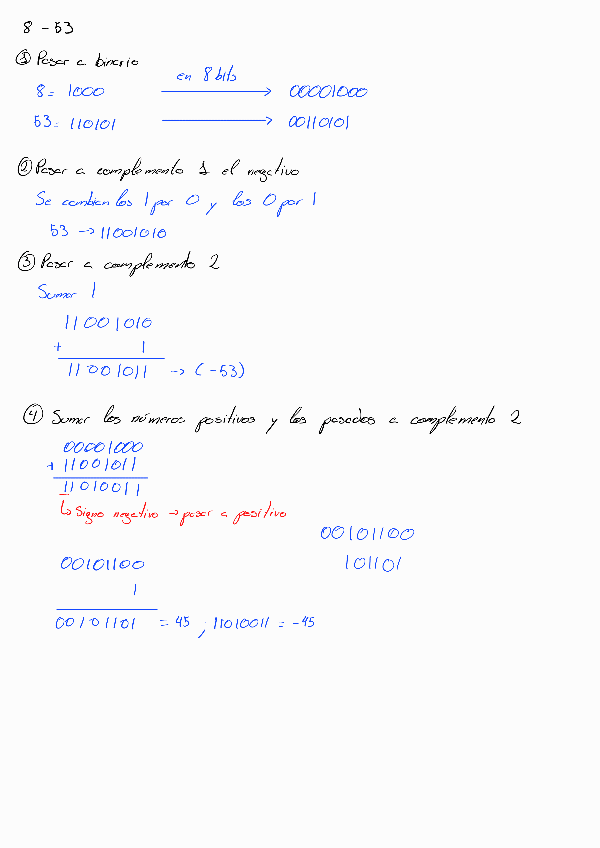 8 - 53
① Pasar a binario
en 8 bits
8 = 1000 → 00001000
53 = 110101 → 00110101
② Pasar a complemento 1 el negativo
Se cambian los 1 por 0 y los 0 por 1
53 → 11001010
③ Pasar a complemento 2
Sumar 1
11001010
+ 1
11001011 → (-53)
④ Sumar los números positivos y los pasados a complemento 2
00001000
+ 11001011
11010011
↳ Signo negativo → pasar a positivo
00101100
00101100 101101
1
00101101 = 45 ; 11010011 = -45